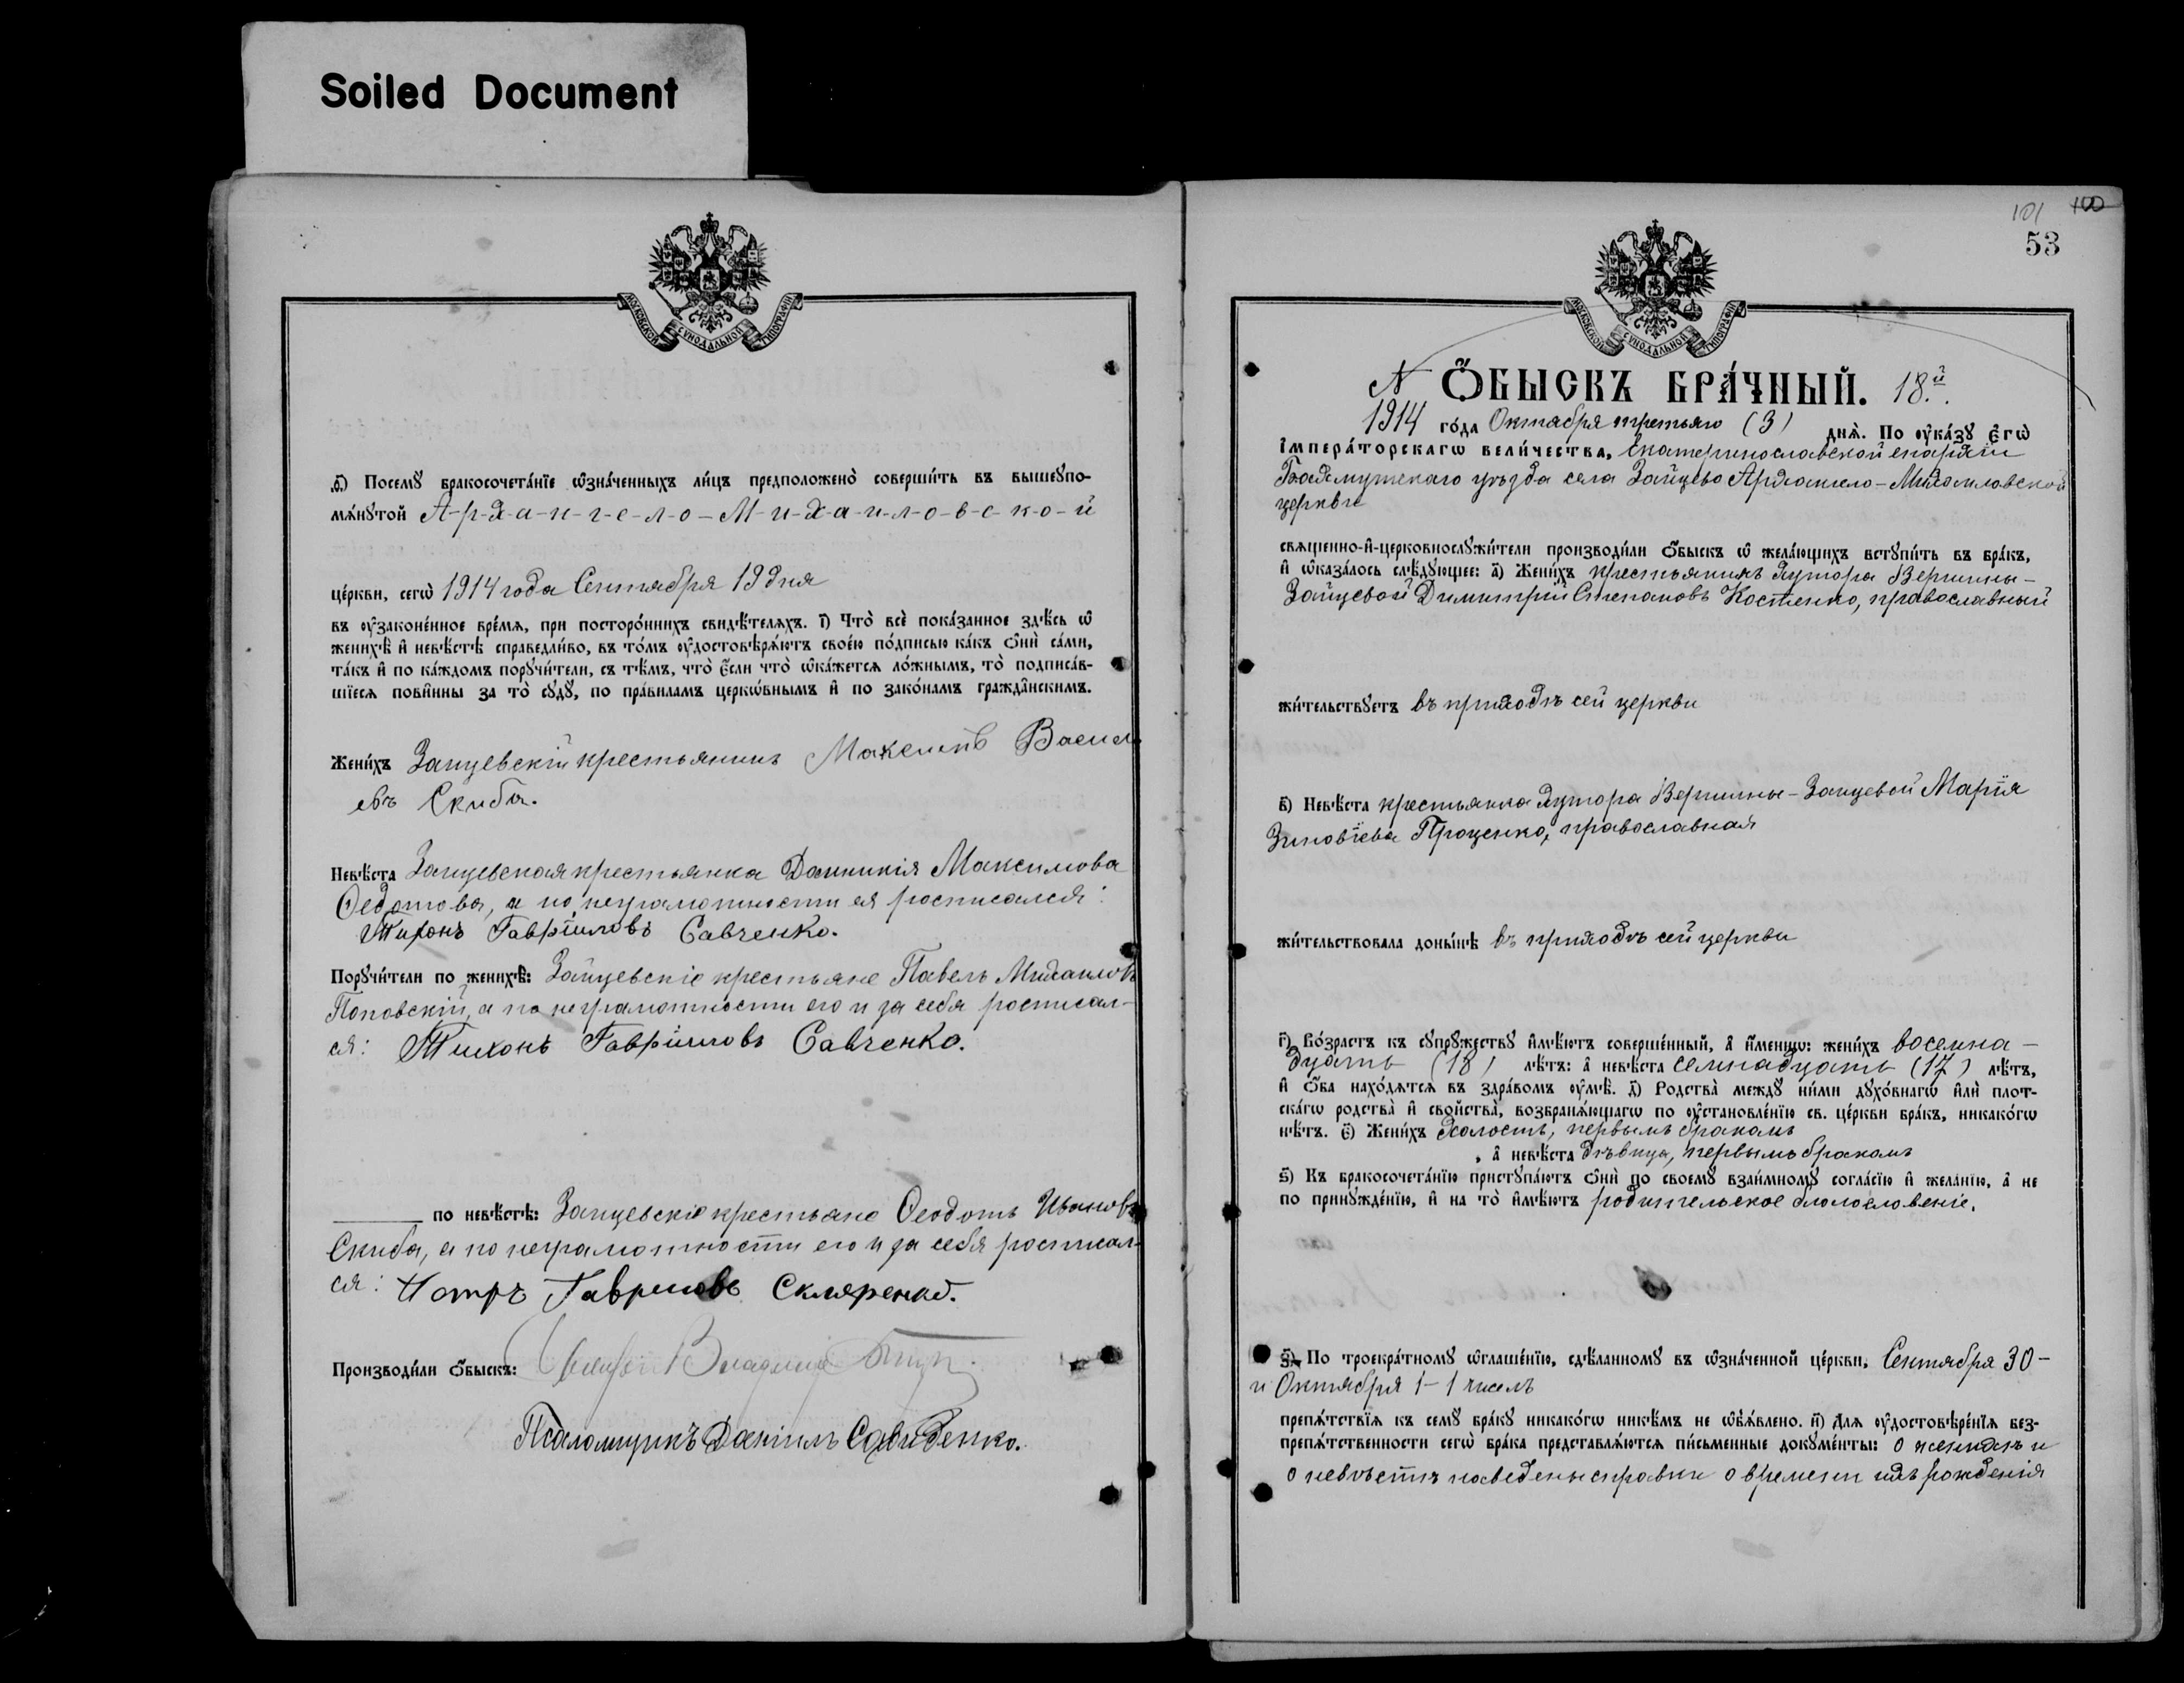 Soiled Document
МОСКОВСКОЙ СѴНОДАЛЬНОЙ ТИПОГРАФІИ
ѳ҃) Посемꙋ бракосочета́нїе ѡ҆зна́ченныхъ ли́цъ предположено̀ соверши́ть въ вышеꙋпо-
мѧ́нꙋтой А-р-х-а-н-г-е-л-о-М-и-х-а-и-л-о-в-с-к-о-й
це́ркви, сегѡ̀ 1914 года Сентября 19 дня
въ ᲂу҆законе́нное вре́мѧ, при посторо́ннихъ свидѣ́телѧхъ. і҃) Что̀ всѐ пока́занное здѣ́сь ѡ҆
женихѣ̀ и҆ невѣ́стѣ справедли́во, въ то́мъ ᲂу҆достовѣрѧ́ютъ свое́ю по́дписью ка́къ ѻ҆нѝ са́ми,
та́къ и҆ по ка́ждомъ порꙋчи́тели, съ тѣ́мъ, что̀ є҆́сли что̀ ѡ҆ка́жетсѧ ло́жнымъ, то̀ подписа́в-
шїесѧ пови́нны за то̀ сꙋдꙋ̀, по пра́виламъ церко́внымъ и҆ по зако́намъ гражда́нскимъ.
Жени́хъ Зайцевскій крестьянинъ Максимъ Васил-
евъ Скиба.
Невѣ́ста Зайцевская крестьянка Домникія Максимова
Ѳедотова, а по неграмотности ея росписался:
Тихонъ Гавріиловъ Савченко.
Порꙋчи́тели по женихѣ̀: Зайцевскіе крестьяне Павелъ Михаиловъ
Поповскій, а по неграмотности его и за себя росписал-
ся: Тихонъ Гавріиловъ Савченко.
по невѣ́стѣ: Зайцевскіе крестьяне Ѳеодотъ Ивановъ
Скиба, а по неграмотности его и за себя росписал-
ся: Петръ Гавриловъ Скляренко.
Производи́ли ѻ҆́быскъ:
Псаломщикъ Даніилъ
101 100
53
МОСКОВСКОЙ СѴНОДАЛЬНОЙ ТИПОГРАФІИ
N Ѻ҆́БЫСКЪ БРА́ЧНЫЙ. 18.й
1914 го́да Октября третьяго (3) днѧ̀. По ᲂу҆ка́зꙋ є҆гѡ̀
і҆мпера́торскагѡ вели́чества, Екатеринославской епархіи
Бахмутскаго уѣзда села Зайцева Архангело-Михаиловской
церкви
свѧще́нно-и҆-церковнослꙋжи́тели производи́ли ѻ҆́быскъ ѡ҆ жела́ющихъ встꙋпи́ть въ бра́къ,
и҆ ѡ҆каза́лось слѣ́дꙋющее: а҃) Жени́хъ крестьянинъ хутора Вершины-
Зайцевой Димитрій Стефановъ Костенко, православный
жи́тельствꙋетъ въ приходѣ сей церкви
в҃) Невѣ́ста крестьянка хутора Вершины-Зайцевой Марія
Зиновіева Проценко, православная
жи́тельствовала доны́нѣ въ приходѣ сей церкви
г҃) Во́зрастъ къ сꙋпрꙋ́жествꙋ и҆мѣ́ютъ соверше́нный, а҆ и҆́менно: жени́хъ восемна-
дцать (18) лѣ́тъ: а҆ невѣ́ста семнадцать (17) лѣ́тъ,
и҆ ѻ҆́ба нахо́дѧтсѧ въ здра́вомъ ᲂу҆мѣ̀. д҃) Родства̀ междꙋ ни́ми дꙋхо́внагѡ и҆лѝ плот-
ска́гѡ родства̀ и҆ свойства̀, возбранѧ́ющагѡ по ᲂу҆становле́нїю св. це́ркви бра́къ, никако́гѡ
нѣ́тъ. є҃) Жени́хъ холостъ, первымъ бракомъ
, а҆ невѣ́ста дѣвица, первымъ бракомъ
ѕ҃) Къ бракосочета́нїю пристꙋпа́ютъ ѻ҆нѝ по своемꙋ̀ взаи́мномꙋ согла́сїю и҆ жела́нїю, а҆ не
по принꙋжде́нїю, и҆ на то̀ и҆мѣ́ютъ родительское благословеніе.
з҃) По троекра́тномꙋ ѡ҆глаше́нїю, сдѣ́ланномꙋ въ ѡ҆зна́ченной це́ркви, Сентября 30-
и Октября 1-1 чиселъ
препѧ́тствїѧ къ семꙋ̀ бра́кꙋ никако́гѡ никѣ́мъ не ѡ҆б̾ѧ́влено. и҃) Длѧ ᲂу҆достовѣре́нїѧ без-
препѧ́тственности сегѡ̀ бра́ка представлѧ́ютсѧ пи́сьменные докꙋме́нты: о женихѣ и
о невѣстѣ наведены справки о времени ихъ рожденія